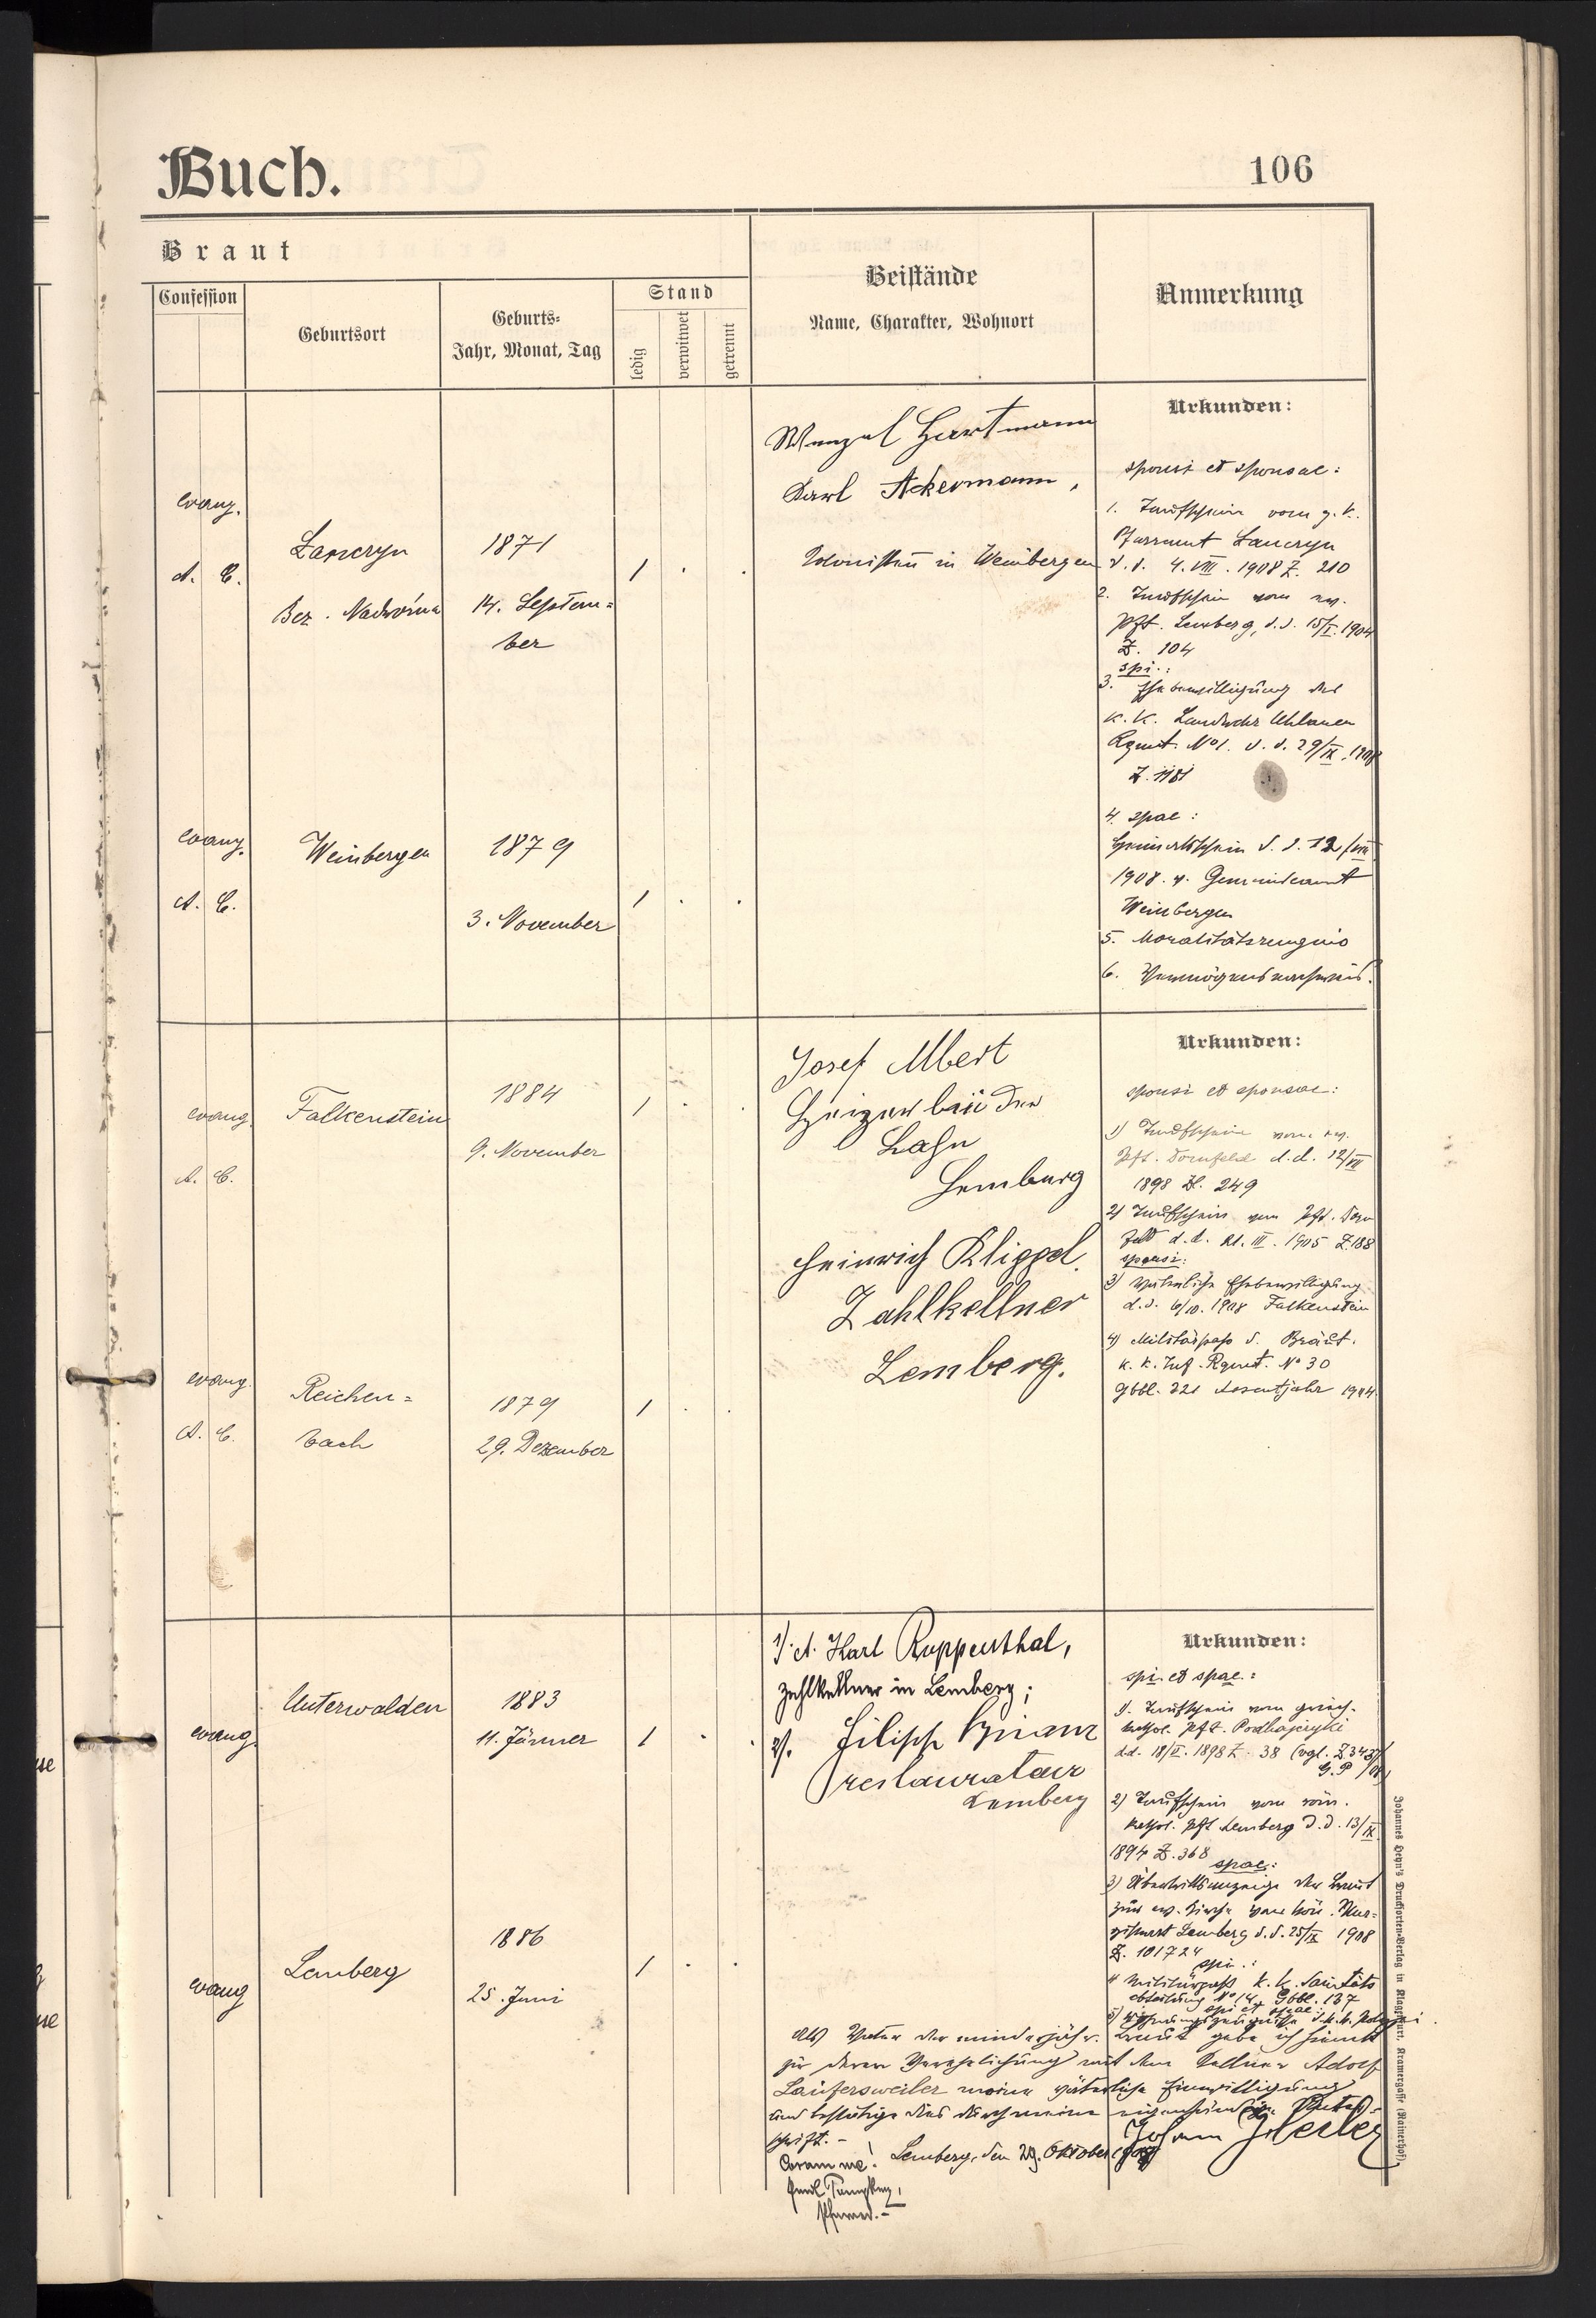 Buch.
106
Braut
Confession
Geburtsort
Geburts-
Jahr, Monat, Tag
Stand
ledig
verwitwet
getrennt
Beistände
Name, Charakter, Wohnort
Anmerkung
evang.
A. C.
Lanczyn
Bez. Nadwórna
1871
14. Septem=
ber
1
Wenzel Hartmann
Karl Ackermann,
Kolonisten in Weinbergen
Urkunden:
sponsi et sponsae:
1. Taufschein vom g. k.
Pfarramt Lanczyn
d. d. 4. VIII. 1908 Z. 210
2. Taufschein vom ev.
Pft. Lemberg, d. d. 15/I. 1904
Z. 104
spi.:
3. Ehebewilligung des
k. k. Landwehr Uhlanen
Rgmt. No 1. d. d. 29/IX. 1908
Z. 1181
4. spae:
Heimatschein d. d. 12/VIII
1908. v. Gemeindeamt
Weinbergen
5. Moralitätszeugnis
6. Vermögensnachweis.
evang.
A. C.
Weinbergen
1879
3. November
1
evang.
A. C.
Falkenstein
1884
9. November
1
Josef Albert
Heizer bei der
Bahn
Lemberg
Heinrich Klippel.
Zahlkellner
Lemberg.
Urkunden:
sponsi et sponsae:
1) Taufschein vom ev.
Pft. Dornfeld d. d. 12/VII
1898 Zl. 249
2) Taufschein vom Pft. Dorn
feld d. d. 21. III. 1905 Z. 188
sponsi:
3) Väterliche Ehebewilligung
d. d. 6/10. 1908 Falkenstein
4) Militärpass d. Bräut.
k. k. Inf. Rgmt. No 30
Gbbl. 221 Assentjahr 1904.
evang.
A. C.
Reichen=
bach
1879
29. Dezember
1
evang.
Unterwalden
1883
11. Jänner
1
1). A. Karl Rupperthal,
Zahlkellner in Lemberg;
2). Filipp
restaurateur
Lemberg
Urkunden:
spi. et spae.:
1). Taufschein vom griech.
kathol. Pft. Podhajczyki
dd. 18/II. 1898 Z. 38 (vgl. Z. 343/
G. P. /08)
2) Taufschein vom röm.
kathol. Pft. Lemberg d. d. 13/IX.
1894 Z. 368
spae:
3) Übertrittsanzeige der Braut
zur ev. Kirche vom kön. Ma-
gistrat Lemberg d. d. 25/IX 1908
Z. 101724
spi.:
4) Militärpass k. k. Sanitäts
abteilung No 14 Gbbl. 137
spi et spae:
5)
evang
Lemberg
1886
25. Juni
1
Als Vater der minderjähr. Braut gebe ich hiemit
zu deren Verehelichung mit dem Kellner Adolf
Laufersweiler meine väterliche Einwilligung
und bestätige dies durch meine eigenhändige Unter-
schrift. –
Lemberg, den 29. Oktober 1908
Johann
Coram me!
Pfarrer. –
Johannes Heyn's Drucksorten-Verlag in Klagenfurt, Kramergasse (Rainerhof).